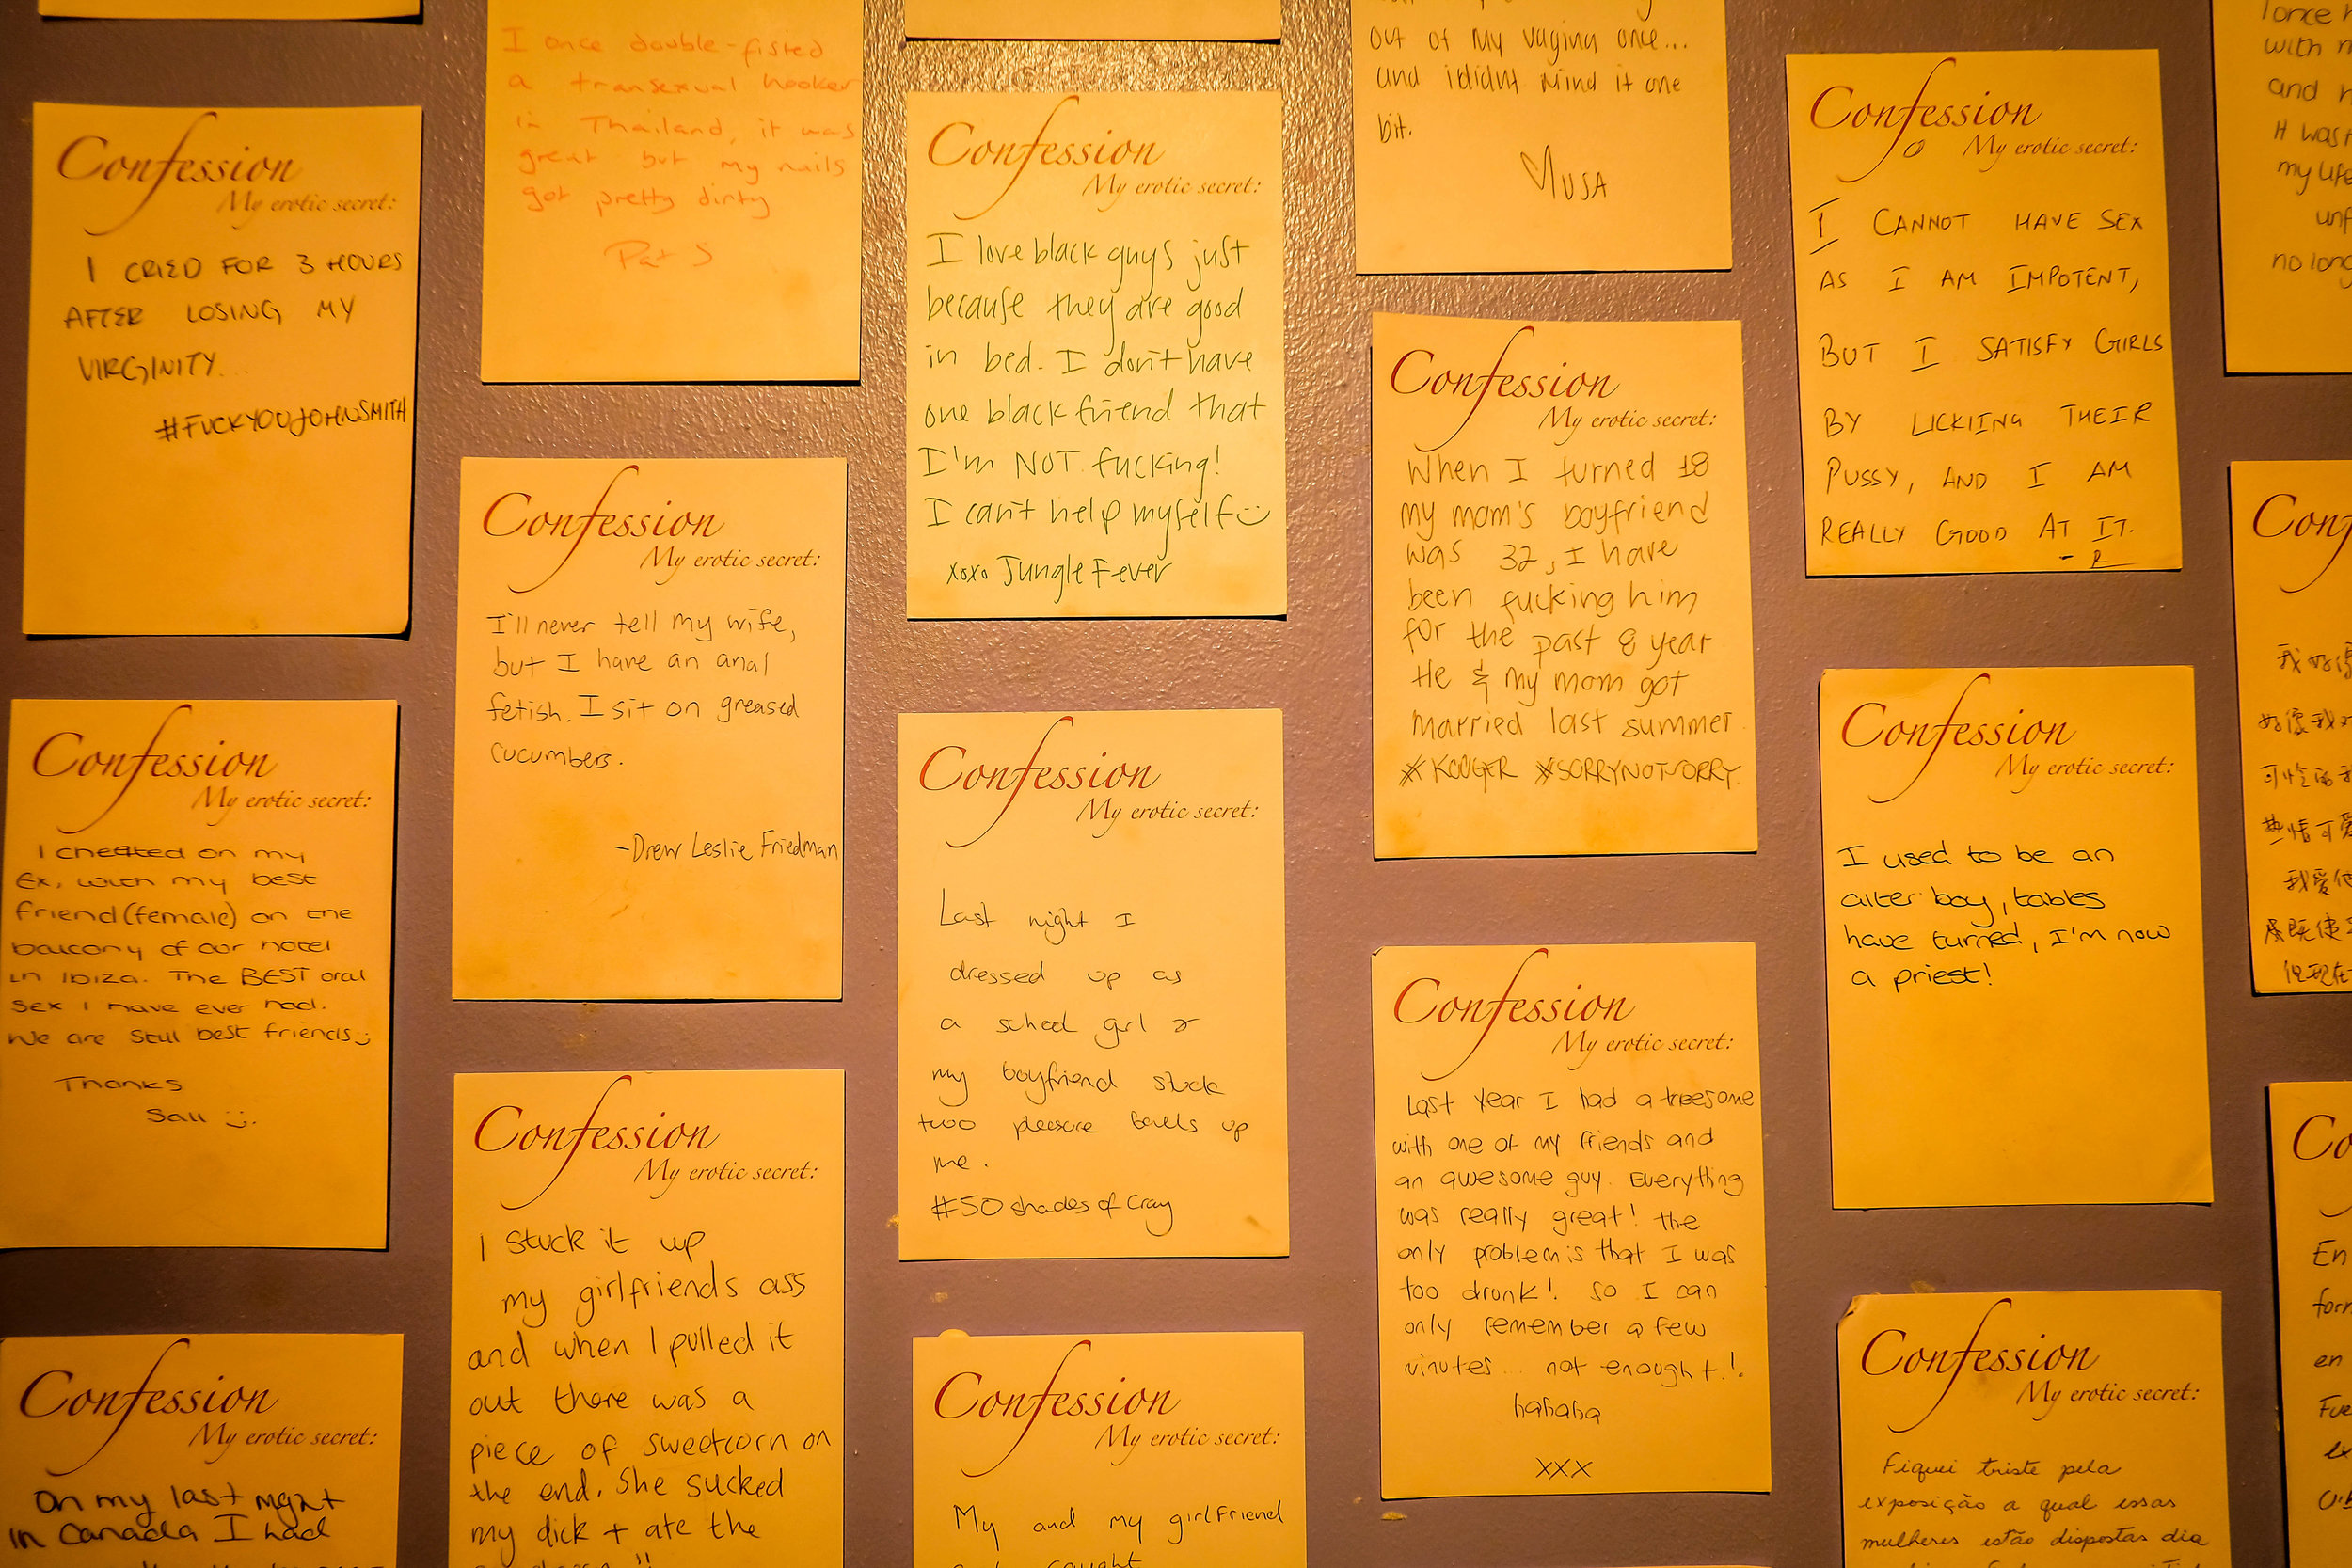 I once double-fisted
a transexual hooker
in Thailand, it was
great but my nails
got pretty dirty
Pat S
out of my vagina once...
and i didnt mind it one
bit.
MUSA
Confession
My erotic secret:
I CRIED FOR 3 HOURS
AFTER LOSING MY
VIRGINITY...
#FUCKYOUJOHNSMITH
Confession
My erotic secret:
I cheated on my
Ex, with my best
friend (female) on the
balcony of our hotel
in Ibiza. The BEST oral
sex I have ever had.
We are still best friends :)
Thanks
Sall :).
Confession
My erotic secret:
On my last night
in Canada I had
Confession
My erotic secret:
I'll never tell my wife,
but I have an anal
fetish. I sit on greased
cucumbers.
-Drew Leslie Friedman
Confession
My erotic secret:
I stuck it up
my girlfriends ass
and when I pulled it
out there was a
piece of sweetcorn on
the end. She sucked
my dick + ate the
Confession
My erotic secret:
I love black guys just
because they are good
in bed. I don't have
one black friend that
I'm NOT fucking!
I can't help myself :)
xoxo Jungle Fever
Confession
My erotic secret:
Last night I
dressed up as
a school girl &
my boyfriend stuck
two pleasure balls up
me.
#50 shades of Cray
Confession
My erotic secret:
My and my girlfriend
caught
Confession
My erotic secret:
When I turned 18
my mom's boyfriend
was 32, I have
been fucking him
for the past 8 year
He & my mom got
married last summer
#KOUGER #SORRYNOTSORRY
Confession
My erotic secret:
Last year I had a treesome
with one of my friends and
an awesome guy. Everything
was really great! the
only problem is that I was
too drunk! so I can
only remember a few
minutes... not enough t!.
hahaha
XXX
Confession
My erotic secret:
I CANNOT HAVE SEX
AS I AM IMPOTENT,
BUT I SATISFY GIRLS
BY LICKIING THEIR
PUSSY, AND I AM
REALLY GOOD AT IT.
- R
Confession
My erotic secret:
I used to be an
alter boy, tables
have turned, I'm now
a priest!
Confession
My erotic secret:
Fiquei triste pela
exposição a qual essas
mulheres estão dispostas dia
I once
with
and
It was
my life
no long
Conf
我
我爱
但现在
Co
En
form
en
Fue